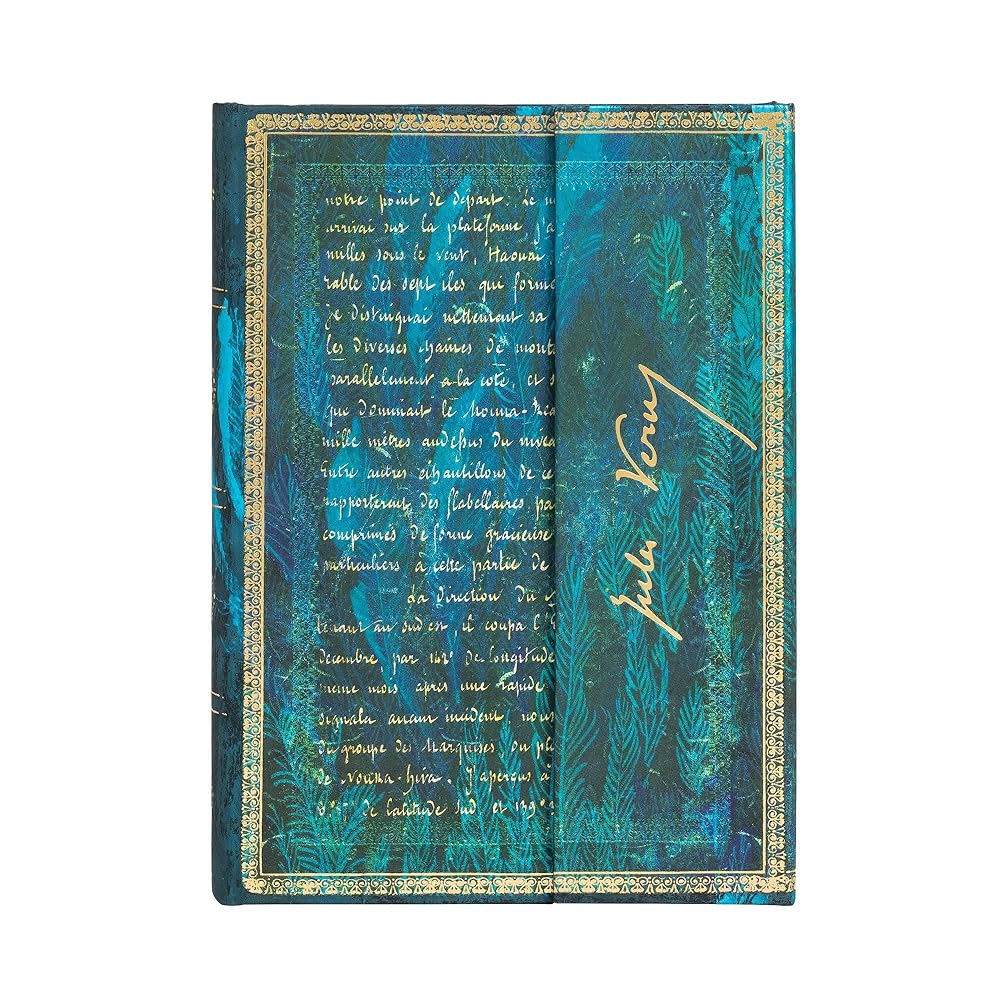 notre point de depart. Le
arrivai sur la plateforme, j'a
milles sous le vent, Haouai
rable des sept iles qui forme
Je distinguai nettement sa
les diverses chaines de monts
parallelement a la cote, et s
que dominait le Mouna-Rea
mille mètres audessus du nivea
Entre autres échantillons de ce
rapporterent des flabellaires pa
comprimés de forme gracieuse
particuliers à cette partie de
La direction du
tenant au sud est, il coupa l'
decembre, par 142° de longitude
meme mois après une rapide
signala aucun incident, nous
du groupe des Marquises. Du
de Nouka-hiva. J'aperçus à
de latitude sud et 139°
Jules Verne